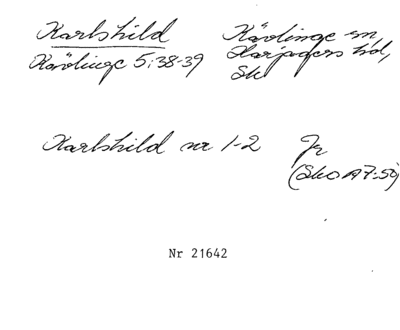 Karlshild Kävlinge sn,
Kävlinge 5:38-39 Harjagers hd,
Sk
Karlshild nr 1-2 Jr
(SkO A7:50)
Nr 21642